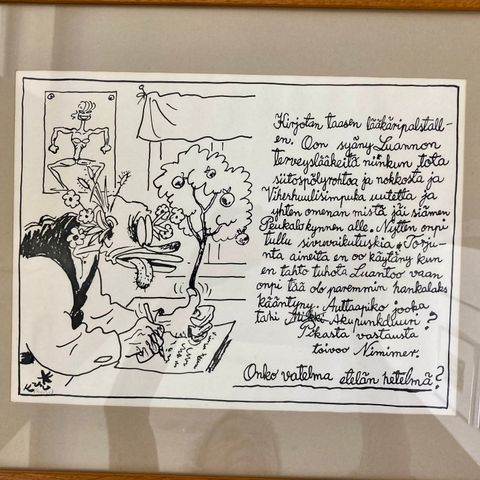 Kirjotan taasen lääkäripalstall-
en. Oon syäny Luannon
terveyslääkeitä niinkun tota
siitospölyrohtoa ja nokkosta ja
Viherhuulisimpuka uutetta ja
yhten omenan mistä jäi siämen
Peukalokynnen alle. Nytten onpi
tullu sivuvaikutuskia. Torju
nta aineita en oo käytäny kun
en tahto tuhota Luantoo vaan
onpi tää olo paremmin hankalaks
kääntyny. Auttaapiko jooka
tahi Akupunkduuri?
Pikasta vastausta
toivoo Nimimer.
Onko vatelma etelän hetelmä?